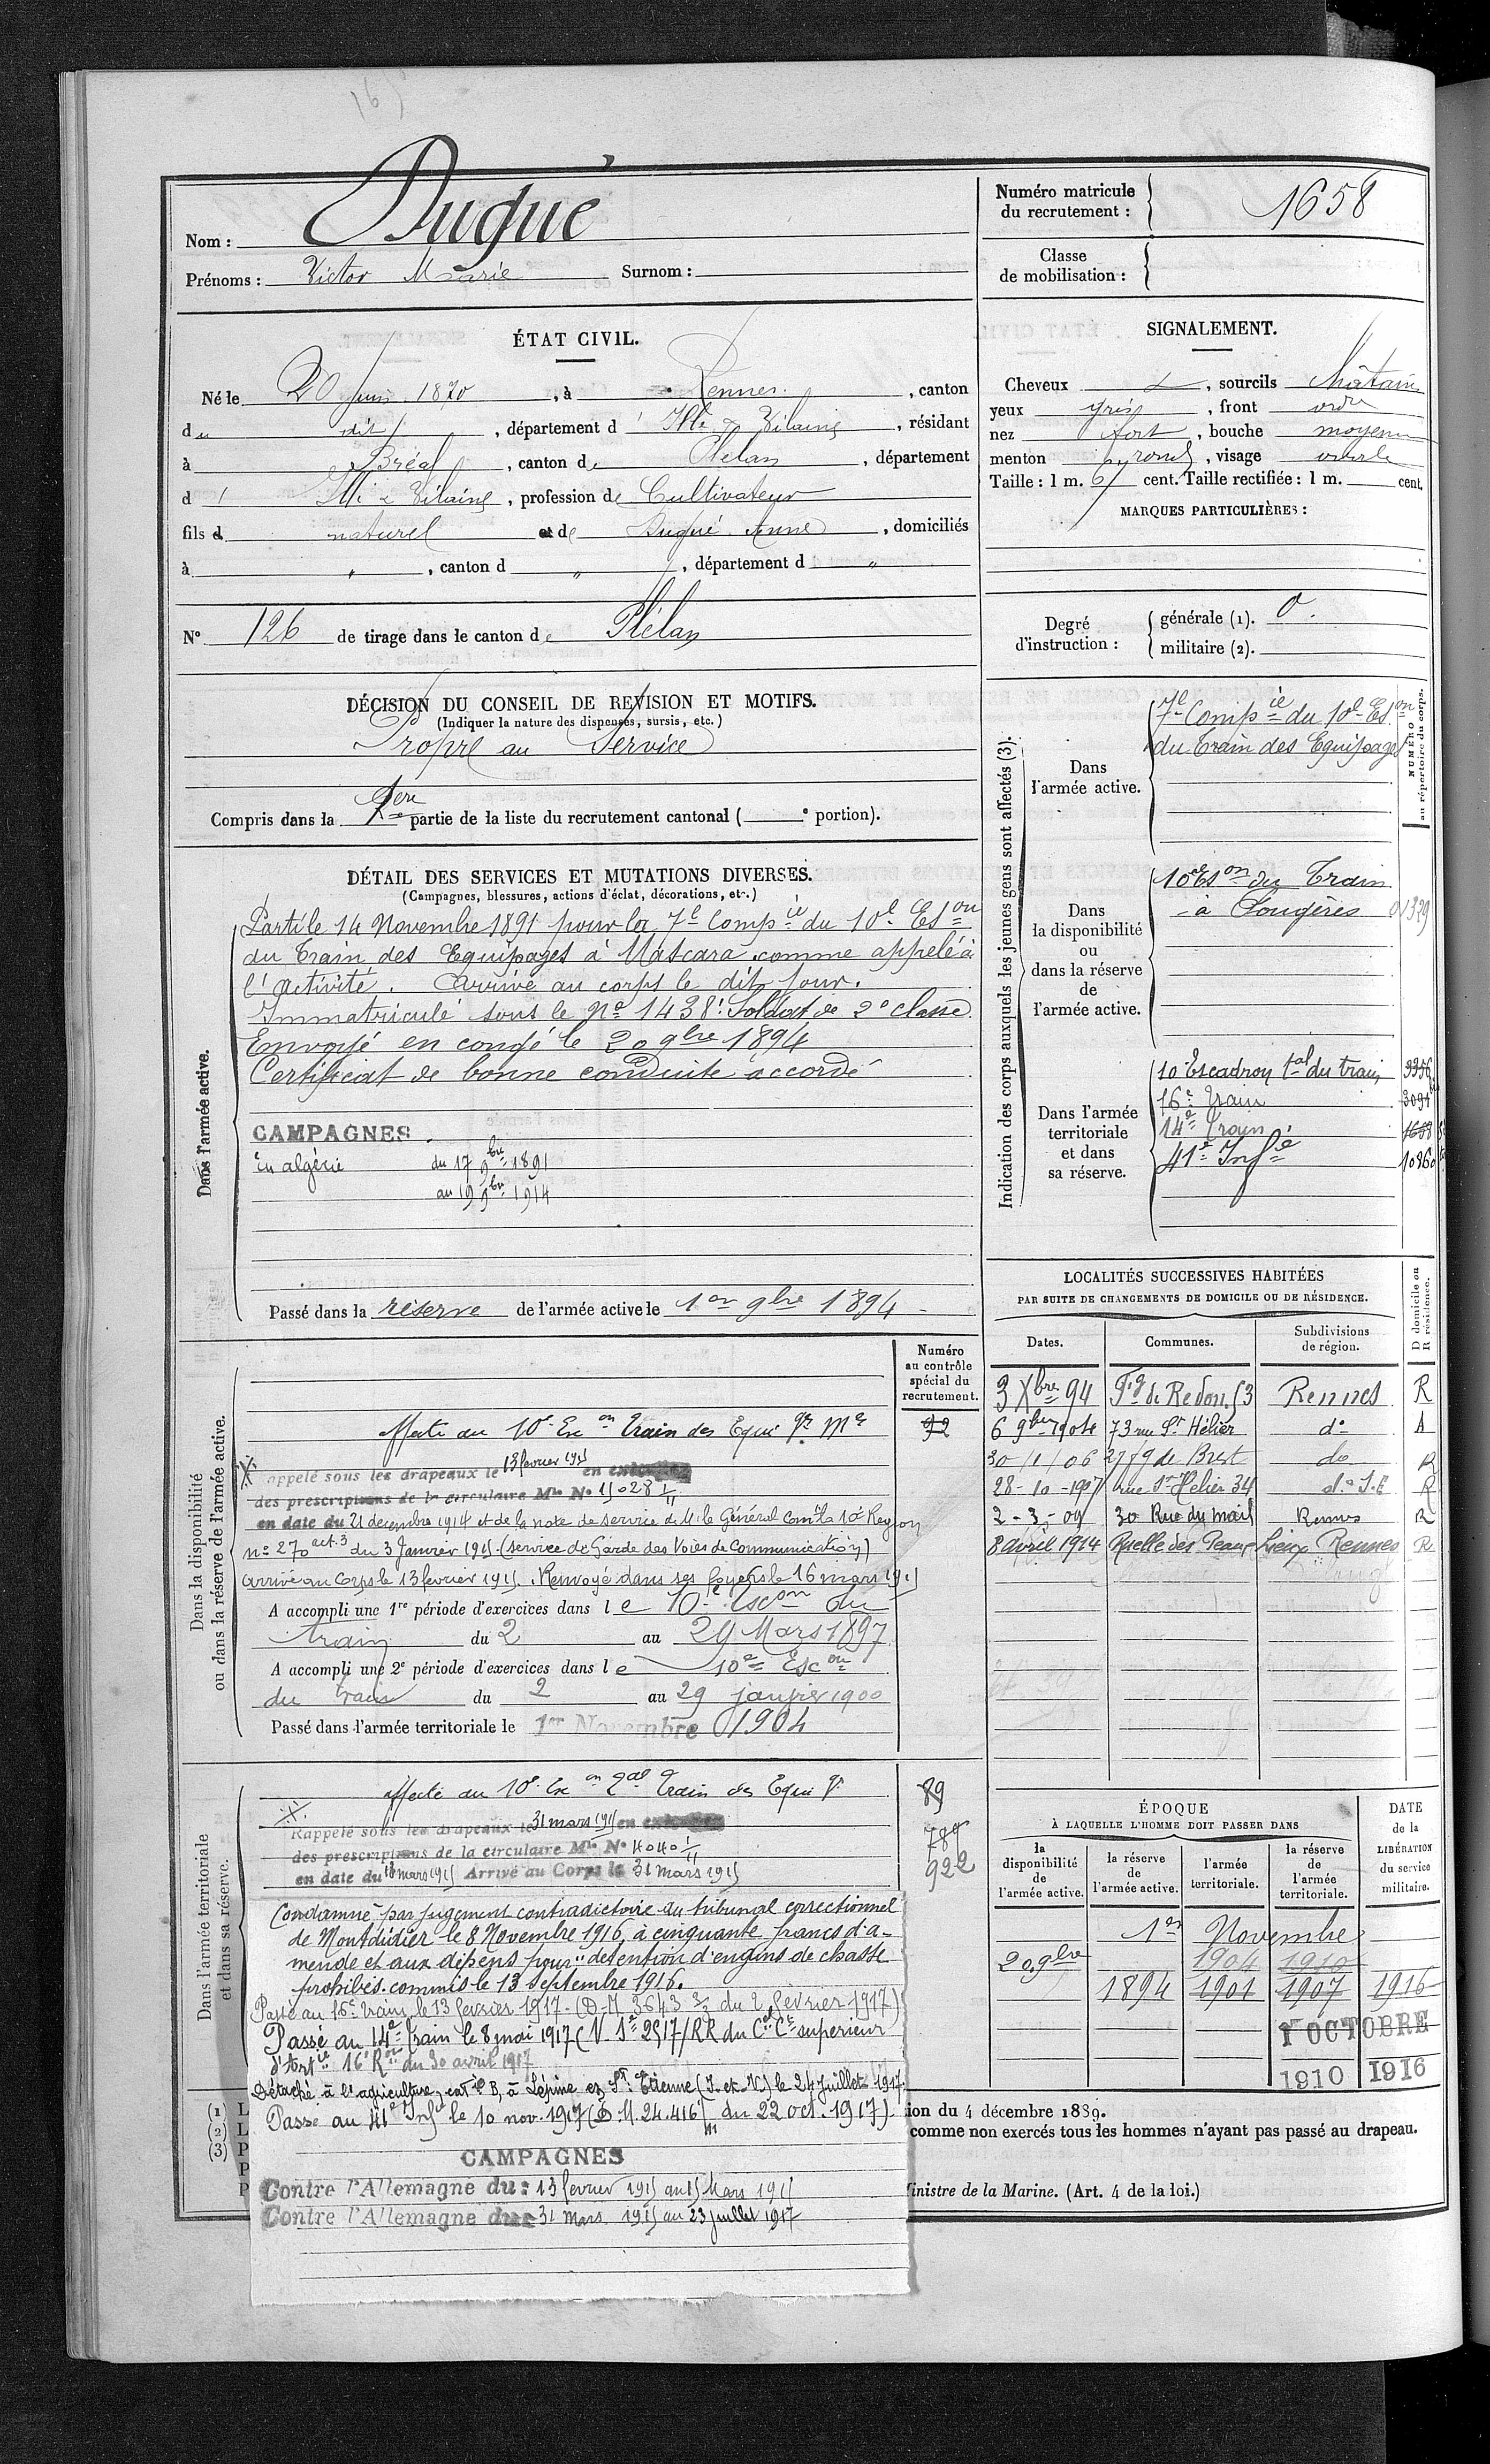 Nom : Dugué
Prénoms : Victor Marie Surnom :
Numéro matricule du recrutement : 1658
Classe de mobilisation :
ÉTAT CIVIL.
Né le 20 juin 1870, à Rennes, canton
du dit, département d'Ille & Vilaine, résidant
à Bréal, canton de Plélan, département
d'Ille & Vilaine, profession de Cultivateur
fils d naturel et de Dugué Anne, domiciliés
à " , canton d " , département d "
N° 126 de tirage dans le canton de Plélan
SIGNALEMENT.
Cheveux &, sourcils châtains
yeux gris, front ordre
nez fort, bouche moyenne
menton rond, visage ovale
Taille : 1 m. 61 cent. Taille rectifiée : 1 m. cent.
MARQUES PARTICULIÈRES :
Degré d'instruction : générale (1). 0.
militaire (2).
DÉCISION DU CONSEIL DE REVISION ET MOTIFS.
(Indiquer la nature des dispenses, sursis, etc.)
Propre au Service
Compris dans la 1ere partie de la liste du recrutement cantonal ( e portion).
DÉTAIL DES SERVICES ET MUTATIONS DIVERSES.
(Campagnes, blessures, actions d'éclat, décorations, etc.)
Dans l'armée active.
Parti le 14 Novembre 1891 pour la 7e Compie du 10e Eson
du Train des Equipages à Mascara comme appelé à
l'activité. Arrivé au corps le dit jour.
Immatriculé sous le No 1438. Soldat de 2e classe.
Envoyé en congé le 20 9bre 1894
Certificat de bonne conduite accordé
CAMPAGNES
En algérie du 17 9bre 1891
au 19 9bre 1914
Passé dans la réserve de l'armée active le 1er 9bre 1894
Dans la disponibilité
ou dans la réserve de l'armée active.
Numéro
au contrôle
spécial du
recrutement.
Affecté au 10e Esc on Train des Equi ges Mres 92
X Rappelé sous les drapeaux le 13 février 1915 en exécution
des prescriptions de la circulaire Mlle No 15028 1/11
en date du 21 décembre 1914 et de la note de service de M. le Général Comt la 10e Region
no 270 act. 3 du 3 Janvier 1915. (service de Garde des Voies de Communication)
arrivé au Corps le 13 février 1915. Renvoyé dans ses foyers le 16 mars 1915
A accompli une 1re période d'exercices dans le 10e Escon du
train du 2 au 29 Mars 1897
A accompli une 2e période d'exercices dans le 10e Escon
du train du 2 au 29 janvier 1900
Passé dans l'armée territoriale le 1er Novembre 1904
Dans l'armée territoriale
et dans sa réserve.
Affecté au 10e Esc on tal Train des Equi ges 89
789
922
X Rappelé sous les drapeaux le 31 mars 1915 en exécution
des prescriptions de la circulaire Mlle No 4040 1/11
en date du 18 mars 1915 Arrivé au Corps le 31 mars 1915
Condamné par jugement contradictoire du tribunal correctionnel
de Montdidier le 8 Novembre 1916, à cinquante francs d'a-
mende et aux dépens pour: "detention d'engins de chasse
prohibés. commis le 13 septembre 1916.
Passé au 16e train le 13 février 1917 - (D.M. 3643 3/3 du 2 février 1917)
Passé au 14e Train le 8 mai 1917 (N. Se 2517/RR du Cel Ct superieur
d'Artie 16e Ron du 30 avril 1917
Détaché à l'agriculture, catie B, à Lépine ez St Etienne (I. et. V.) le 24 Juillet 1917.
Passé au 41e Infie le 10 nov. 1917 (D.M. 24.416 du 22 oct. 1917).
CAMPAGNES
Contre l'Allemagne du : 13 février 1915 au 15 Mars 1915
Contre l'Allemagne du : 31 Mars 1915 au 23 juillet 1917
Indication des corps auxquels les jeunes gens sont affectés (3).
NUMÉRO
au répertoire du corps.
Dans l'armée active.
7e Compie du 10e Eson
du Train des Equipages
Dans la disponibilité ou dans la réserve de l'armée active.
10e Eson du Train
à Fougères 01329
Dans l'armée territoriale et dans sa réserve.
10 Escadron tal du train 3356
16e train 3094
14e train 1658
41e Infie 10860
LOCALITÉS SUCCESSIVES HABITÉES
PAR SUITE DE CHANGEMENTS DE DOMICILE OU DE RÉSIDENCE.
Dates. Communes. Subdivisions de région. D domicile ou R résidence.
3 Xbre 94 Fg de Redon, 53 Rennes R
6 9bre 1904 73 rue St Hélier do R
30/1/06 27 fg de Brest do R
28-10-1907 rue St Hélier 34 do R
2-3-09 30 Rue du mail Rennes R
8 avril 1914 Ruelle des Beaux Lieux Rennes R
ÉPOQUE
À LAQUELLE L'HOMME DOIT PASSER DANS
la disponibilité de l'armée active.
la réserve de l'armée active.
l'armée territoriale.
la réserve de l'armée territoriale.
DATE de la LIBÉRATION du service militaire.
1er Novembre
20 9bre 1904 1910
1894 1901 1907 1916
1er OCTOBRE
1910 1916
(1) L
(2) L
(3) P
P
P
ion du 4 décembre 1889.
comme non exercés tous les hommes n'ayant pas passé au drapeau.
inistre de la Marine. (Art. 4 de la loi.)